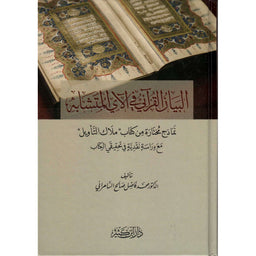 البيان القرآني في الآي المتشابه
نماذج مختارة من كتاب "ملاك التأويل"
مع دراسة نقدية في تحقيقي الكتاب
تأليف
الدكتور محمد فاضل صالح السامرائي
دار ابن كثير